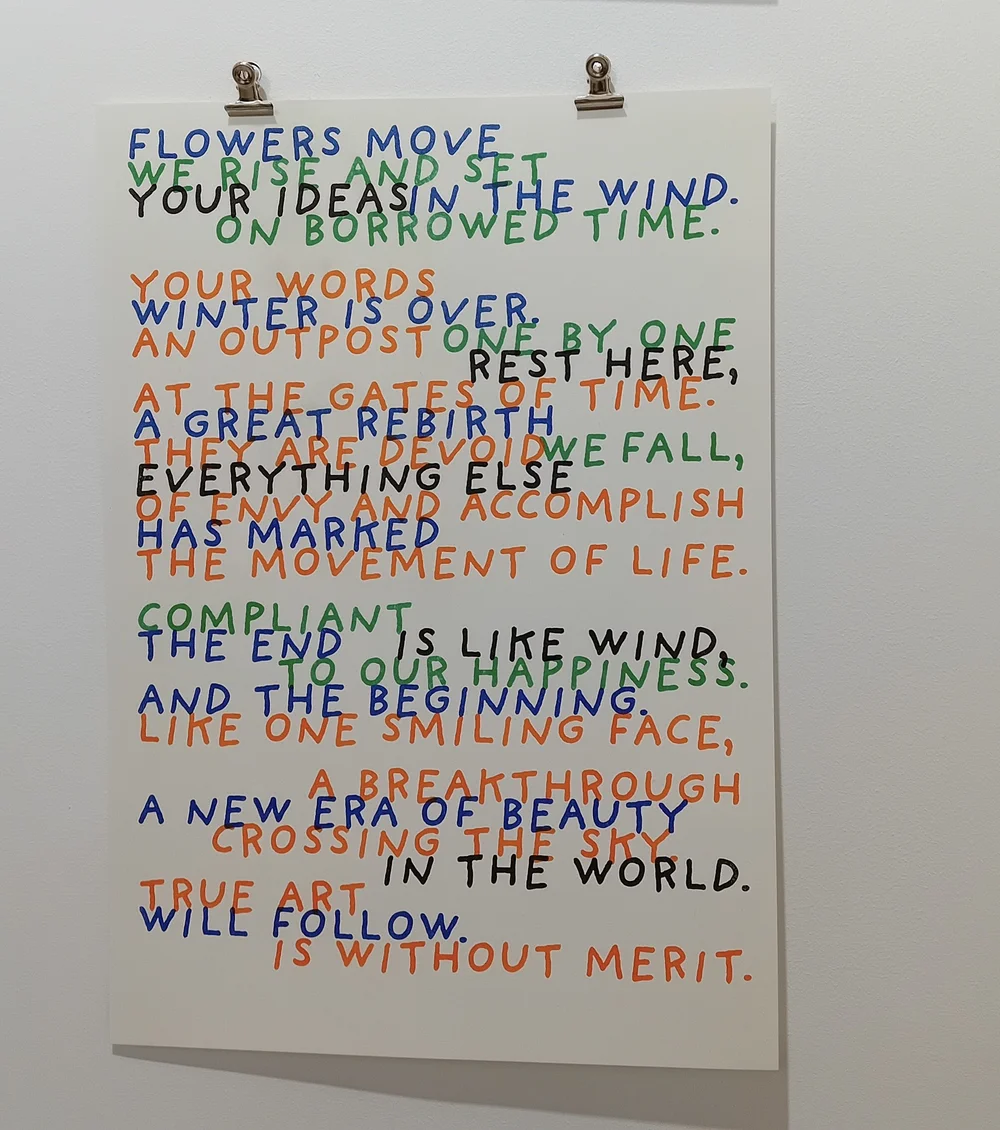 FLOWERS MOVE
WE RISE AND SET
YOUR IDEAS IN THE WIND.
ON BORROWED TIME.
YOUR WORDS
WINTER IS OVER.
AN OUTPOST ONE BY ONE
REST HERE,
AT THE GATES OF TIME.
A GREAT REBIRTH
THEY ARE DEVOID WE FALL,
EVERYTHING ELSE
OF ENVY AND ACCOMPLISH
HAS MARKED
THE MOVEMENT OF LIFE.
COMPLIANT
THE END IS LIKE WIND,
TO OUR HAPPINESS.
AND THE BEGINNING.
LIKE ONE SMILING FACE,
A BREAKTHROUGH
A NEW ERA OF BEAUTY
CROSSING THE SKY.
IN THE WORLD.
TRUE ART
WILL FOLLOW.
IS WITHOUT MERIT.